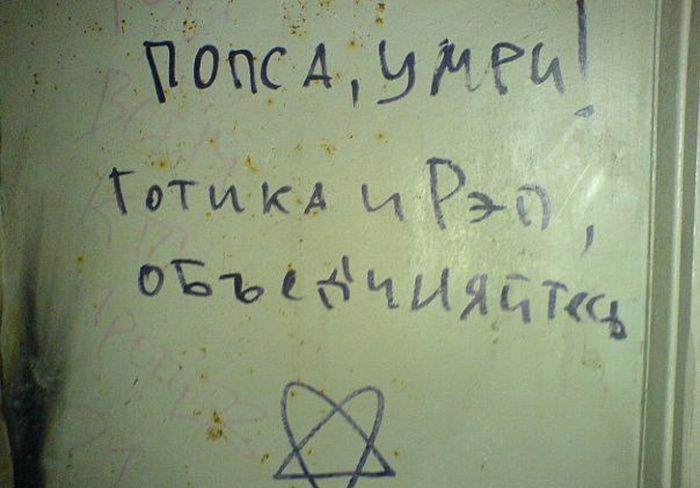 ПОПСА, УМРИ!
ГОТИКА И РЭП,
ОБЪЕДИНЯЙТЕСЬ